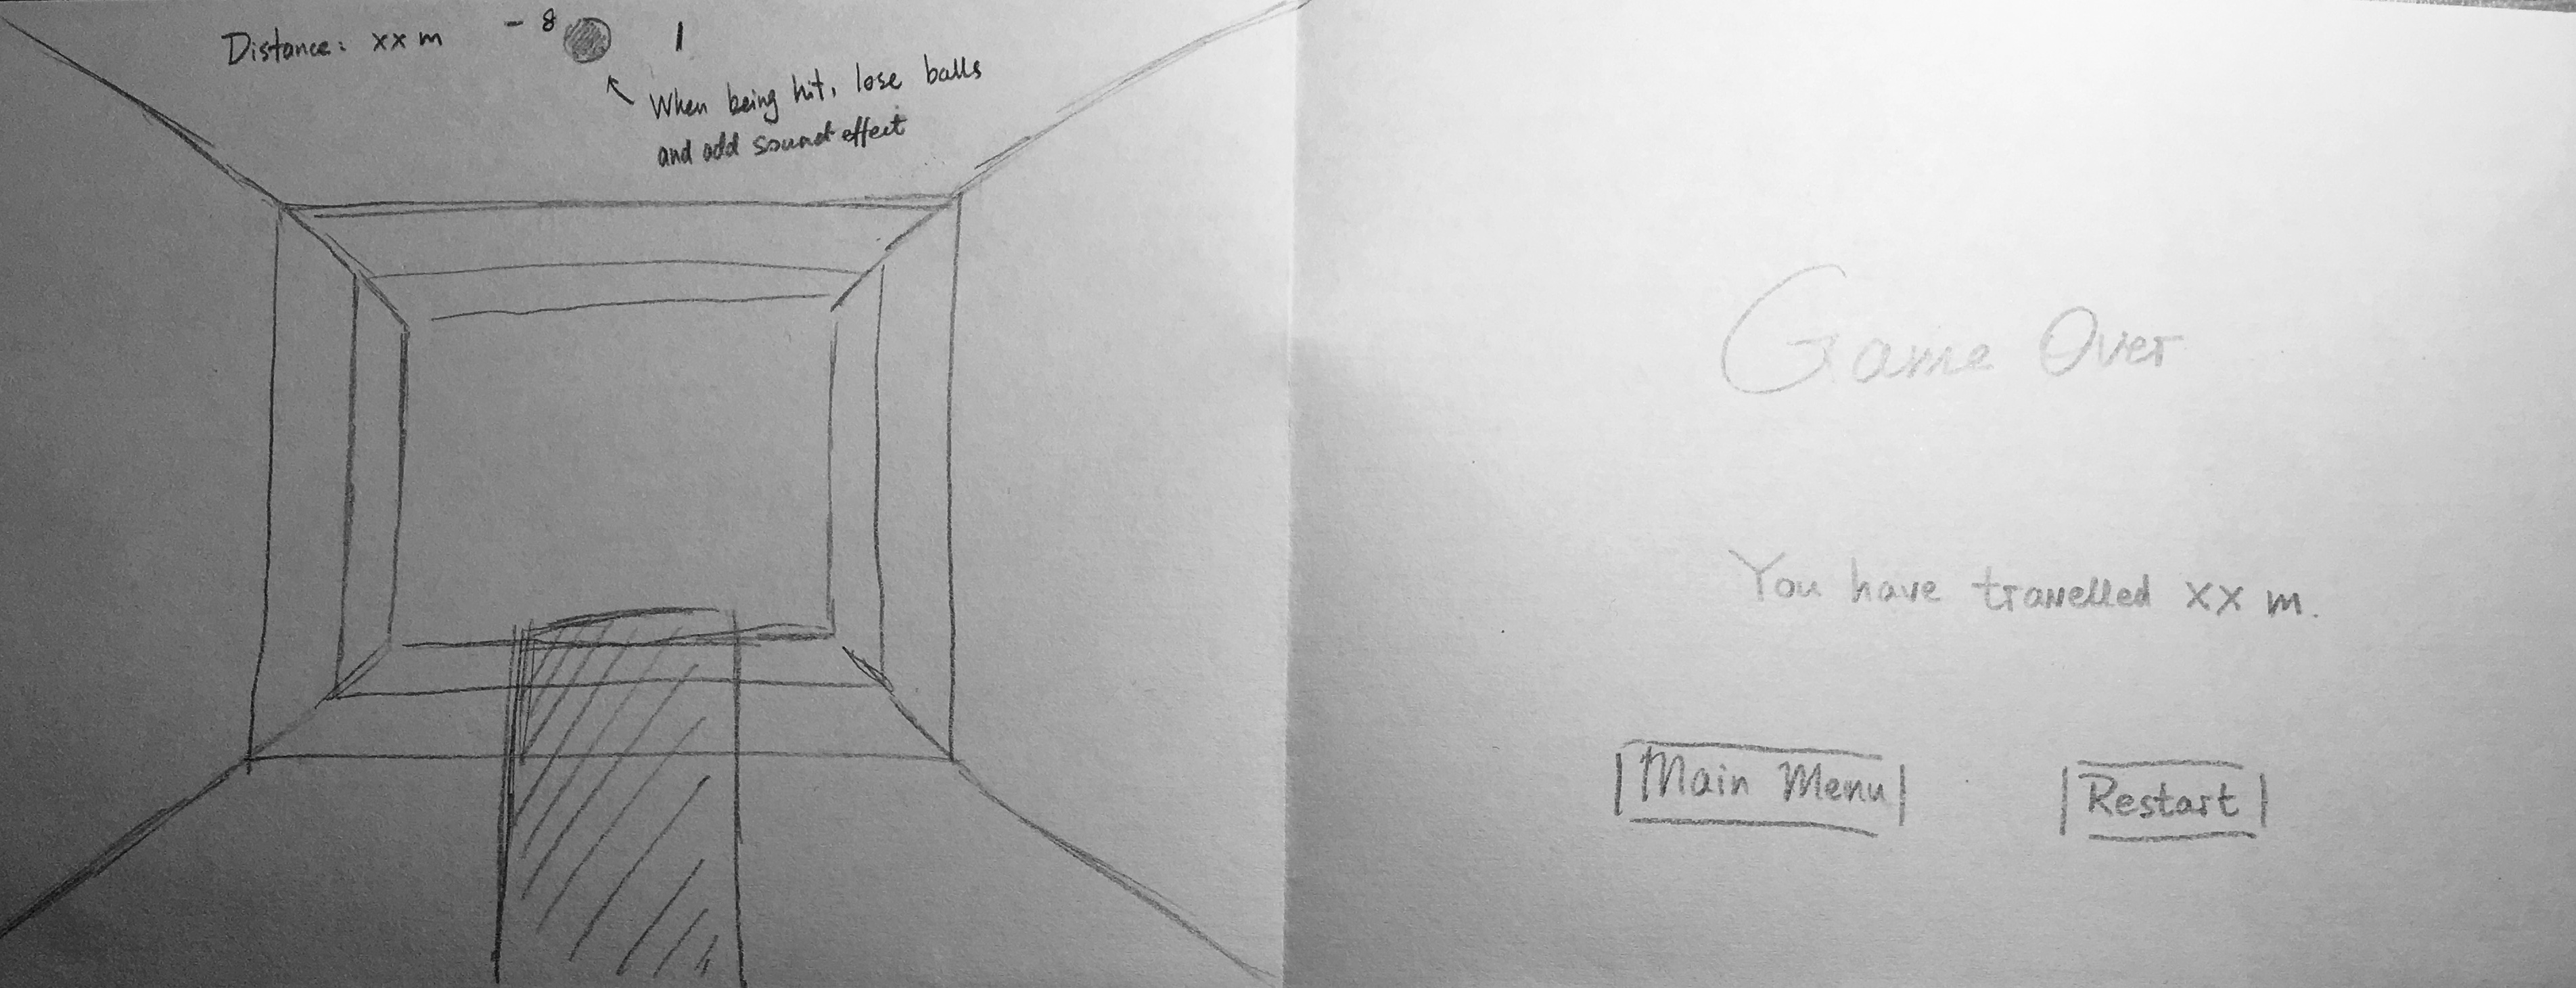 Distance: xx m - 8 1
When being hit, lose balls
and add sound effect
Game Over
You have travelled xx m.
Main Menu Restart